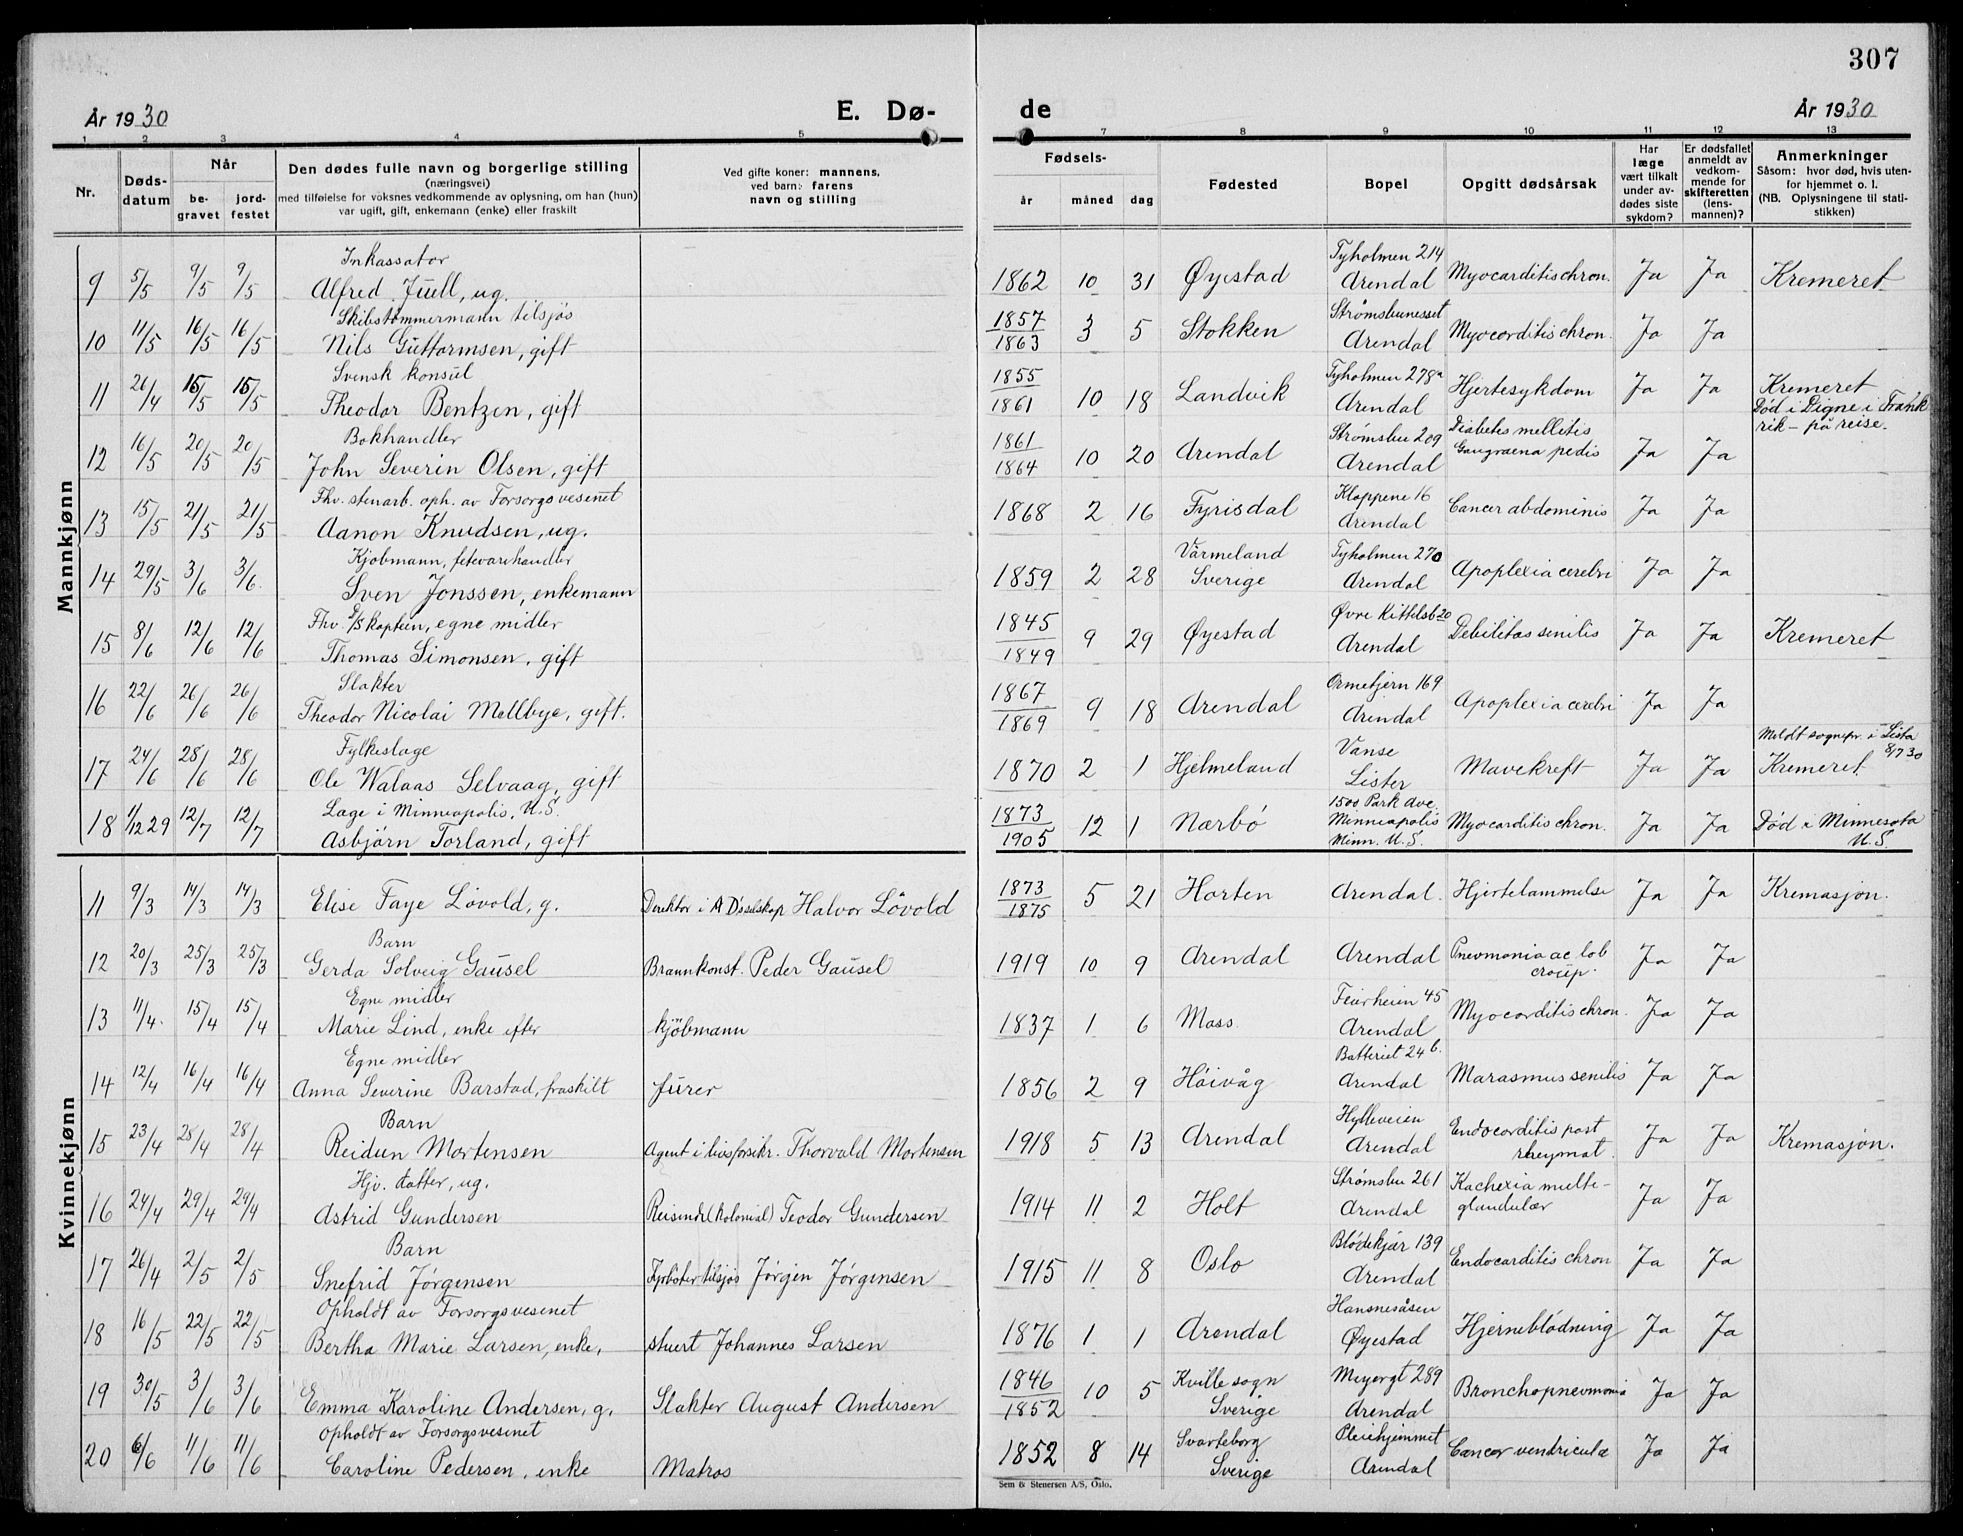 307
År 1930 E. Dø- de År 1930
1 2 3 4 5 7 8 9 10 11 12 13
Nr. Døds-datum Når be-gravet jord-festet
Den dødes fulle navn og borgerlige stilling
(næringsvei)
med tilføielse for voksnes vedkommende av oplysning, om han (hun)
var ugift, gift, enkemann (enke) eller fraskilt
Ved gifte koner: mannens,
ved barn: farens
navn og stilling
Fødsels- år måned dag
Fødested
Bopel
Opgitt dødsårsak
Har læge vært tilkalt under av-dødes siste sykdom?
Er dødsfallet anmeldt av vedkom-mende for skifteretten (lens-mannen)?
Anmerkninger
Såsom: hvor død, hvis uten-
for hjemmet o. l.
(NB. Oplysningene til stati-
stikken)
Mannkjønn
Inkassator Tyholmen 214
9 5/5 9/5 9/5 Alfred Juell, ug. 1862 10 31 Øyestad Arendal Myocarditis chron. Ja Ja Kremeret
Skibstømmermann tilsjøs 1857 Strømsbunesset
10 11/5 16/5 16/5 Nils Guttormsen, gift 1863 3 5 Stokken Arendal Myocarditis chron. Ja Ja
Svensk konsul 1855 Tyholmen 278a
11 26/4 15/5 15/5 Theodor Bentzen, gift 1861 10 18 Landvik Arendal Hjertesykdom Ja Ja Kremeret
Død i Digne i Frank
rik - på reise.
Bokhandler 1861 Strømsbu 209 Diabetes mellitis
12 16/5 20/5 20/5 John Severin Olsen, gift 1864 10 20 Arendal Arendal Gangraena pedis Ja Ja
Fhv. stenarb. oph. av Forsorgsvesenet Kloppene 16
13 15/5 21/5 21/5 Aanon Knudsen, ug. 1868 2 16 Fyrisdal Arendal Cancer abdominis Ja Ja
Kjøbmann, fetevarehandler Värmeland Tyholmen 270
14 29/5 3/6 3/6 Sven Jonssen, enkemann 1859 2 28 Sverige Arendal Apoplexia cerebri Ja Ja
Fhv. S/S kaptein, egne midler 1845 Øvre Kittelsb 20
15 8/6 12/6 12/6 Thomas Simonsen, gift 1849 9 29 Øyestad Arendal Debilitas senilis Ja Ja Kremeret
Slakter 1867 Ormetjern 169
16 22/6 26/6 26/6 Theodor Nicolai Mellbye, gift. 1869 9 18 Arendal Arendal Apoplexia cerebri Ja Ja
Fylkeslæge Vanse Meldt sognepr. i Lista 8/7 30
17 24/6 28/6 28/6 Ole Walaas Selvaag, gift 1870 2 1 Hjelmeland Lister Mavekreft Ja Ja Kremeret.
Læge i Minneapolis, U.S. 1873 1500 Park Ave.
18 1/12 29 12/7 12/7 Asbjørn Torland, gift 1905 12 1 Nærbø Minneapolis Minn. U.S. Myocarditis chron. Ja Ja Død i Minnesota
U.S.
Kvinnekjønn
11 9/3 14/3 14/3 Elise Faye Løvold, g. Direktør i A D's selskap Halvor Løvold 1873 1875 5 21 Horten Arendal. Hjertelammelse Ja Ja Kremasjon.
Barn
12 20/3 25/3 25/3 Gerda Solveig Gausel Brannkonst. Peder Gausel 1919 10 9 Arendal Arendal Pneumonia ac lob croup. Ja Ja
Egne midler Feierheien 45
13 11/4 15/4 15/4 Marie Lind, enke efter kjøbmann 1837 1 6 Moss. Arendal Myocarditis chron. Ja Ja
Egne midler Batteriet 24 b.
14 12/4 16/4 16/4 Anna Severine Barstad, fraskilt fürer 1856 2 9 Høivåg Arendal Marasmus senilis Ja Ja
Barn Hylleveien
15 23/4 28/4 28/4 Reidun Mortensen Agent i livsforsikr. Thorvald Mortensen 1918 5 13 Arendal Arendal Endocarditis post rheymat. Ja Ja Kremasjon.
Hjv. datter, ug. Strømsbu 261
16 24/4 29/4 29/4 Astrid Gundersen Reisende (kolonial) Teodor Gundersen 1914 11 2 Holt Arendal Kachexia multe-glandulær Ja Ja
Barn Blødekjær 139
17 26/4 2/5 2/5 Snefrid Jørgensen Fyrbøter tilsjøs Jørgen Jørgensen 1915 11 8 Oslo Arendal Endocarditis chron Ja Ja
Opholdt av Forsorgsvesenet Hansnesåsen
18 16/5 22/5 22/5 Bertha Marie Larsen, enke, stuert Johannes Larsen 1876 1 1 Arendal Øyestad Hjerneblødning Ja Ja
1846 Kville sogn Meyergt 289
19 30/5 3/6 3/6 Emma Karoline Andersen, g. Slakter August Andersen 1852 10 5 Sverige Arendal Bronchopneumonia Ja Ja
Opholdt av Forsorgsvesenet Svarteborg Pleiehjemmet
20 6/6 11/6 11/6 Caroline Pedersen, enke Matros 1852 8 14 Sverige Arendal Cancer ventriculæ Ja Ja
Sem & Stenersen A/S, Oslo.